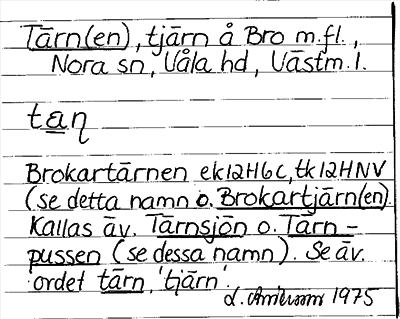 Tärn(en), tjärn å Bro m.fl.,
Nora sn, Våla hd, Västm.l.
taṇ
Brokartärnen ek12H6c, tk12HNV
(se detta namn o. Brokartjärn(en)
Kallas äv. Tärnsjön o. Tärn-
pussen (se dessa namn). Se äv.
ordet tärn, 'tjärn'.
1975